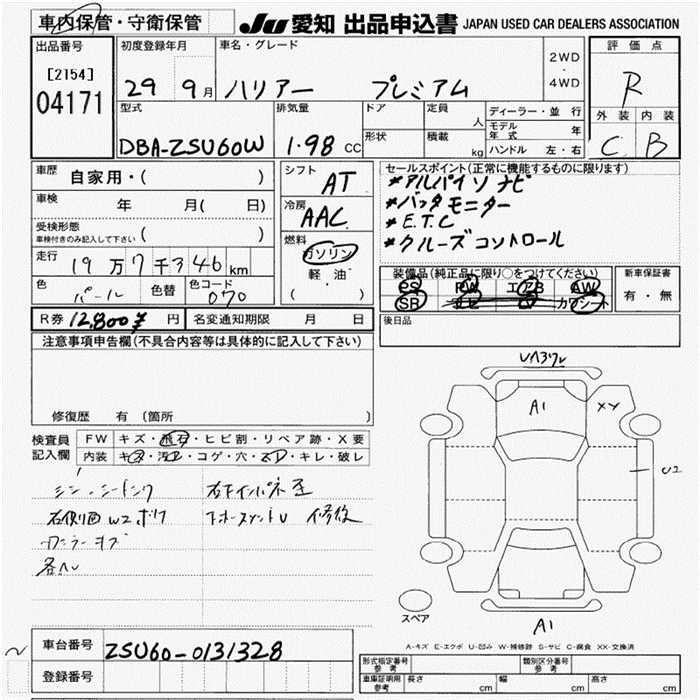 車内保管・守衛保管 JU 愛知 出品申込書 JAPAN USED CAR DEALERS ASSOCIATION
出品番号 [2154] 04171
初度登録年月 29 9月
車名・グレード ハリアー プレミアム
2WD・4WD
評価点 R
外装 内装 C B
型式 DBA-ZSU60W
排気量 1.98 CC
ドア 定員 人
形状 積載 kg
ディーラー・並行
モデル年式 年
ハンドル 左・右
車歴 自家用・( )
車検 年 月( 日)
受検形態
車検付きのみ記入して下さい ( )
走行 19万7千346km
色 パール 色替 色コード 070
シフト AT
冷房 AAC
燃料 ガソリン 軽油 ( )
セールスポイント(正常に機能するものに限ります)
*アルパイン ナビ
*バックモニター
*E.T.C
*クルーズコントロール
装備品(純正品に限り○をつけてください)
PS PW エアB AW
SR ナビ TV カワシート
新車保証書 有・無
R券 12,800¥ 円 名変通知期限 月 日
後日品
注意事項申告欄(不具合内容等は具体的に記入して下さい)
修復歴 有(箇所
検査員記入欄
FW キズ・飛石・ヒビ割・リペア跡・X要
内装 キズ・汚レ・コゲ・穴・スレ・キレ・破レ
右側面 W2
A1
XY
U2
A1
スペア
A-キズ E-エクボ U-凹み W-補修跡 S-サビ C-腐食 XX-交換済
車台番号 ZSU60-0131328
登録番号
形式指定番号 参考 類別区分番号 参考
車庫証明用 参考 長さ cm 幅 cm 高さ cm